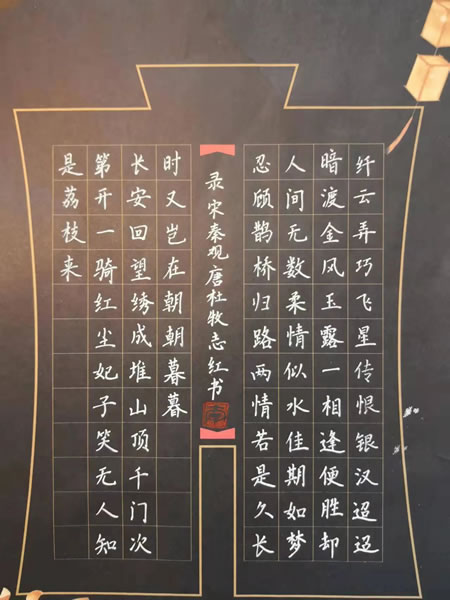 纤云弄巧飞星传恨银汉迢迢
暗渡金风玉露一相逢便胜却
人间无数柔情似水佳期如梦
忍顾鹊桥归路两情若是久长
录宋秦观唐杜牧志红书
时又岂在朝朝暮暮
长安回望绣成堆山顶千门次
第开一骑红尘妃子笑无人知
是荔枝来